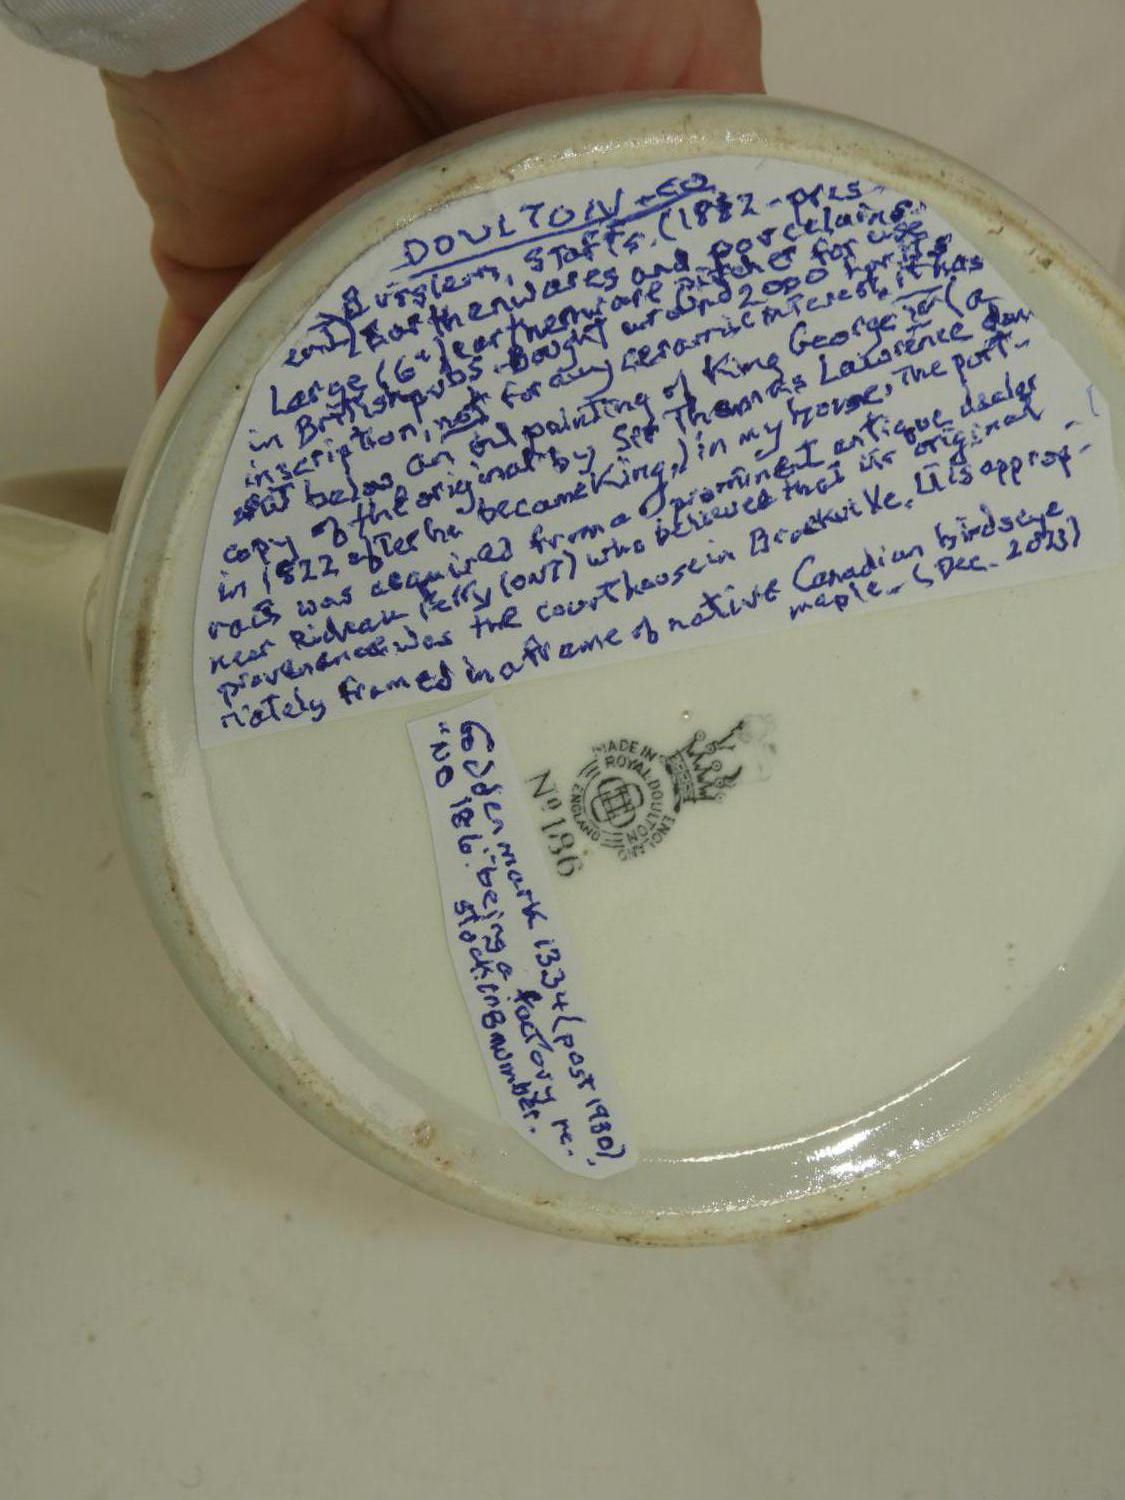 DOULTON + CO.
Burslem, Staffs. (1882 - pres-
ent) Earthenwares and porcelains.
Large (6") earthenware pitcher for use
in British pubs. Bought around 2000 for its
inscription, not for any ceramic interest, it has
sat below an oil painting of King George IV (a
copy of the original by Sir Thomas Lawrence done
in 1822 after he became King,) in my house, The port-
rait was acquired from a prominent antique dealer
near Rideau Ferry (ONT) who believed that its original
provenance was the courthouse in Brockville. It is approp-
riately framed in a frame of native Canadian birdseye
maple. (Dec. 2023)
Godden mark 1334 (post 1930)
"No 186" being a factory re-
stocking number.
MADE IN
ENGLAND
ROYAL DOULTON
ENGLAND
Nº 186